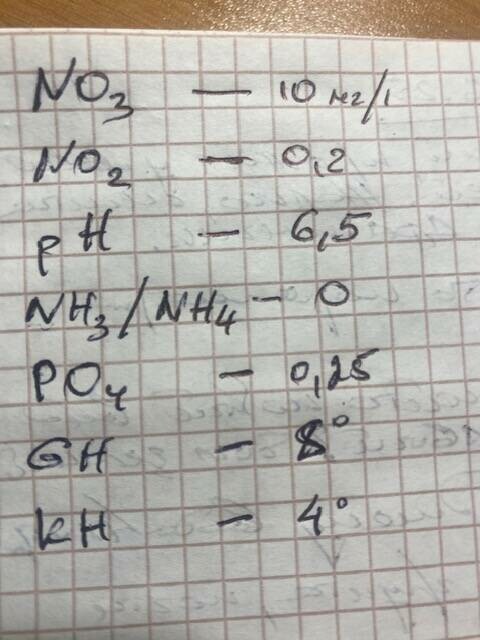 NO3 — 10 мг/l
NO2 — 0,2
pH — 6,5
NH3/NH4 — 0
PO4 — 0,25
GH — 8°
kH — 4°